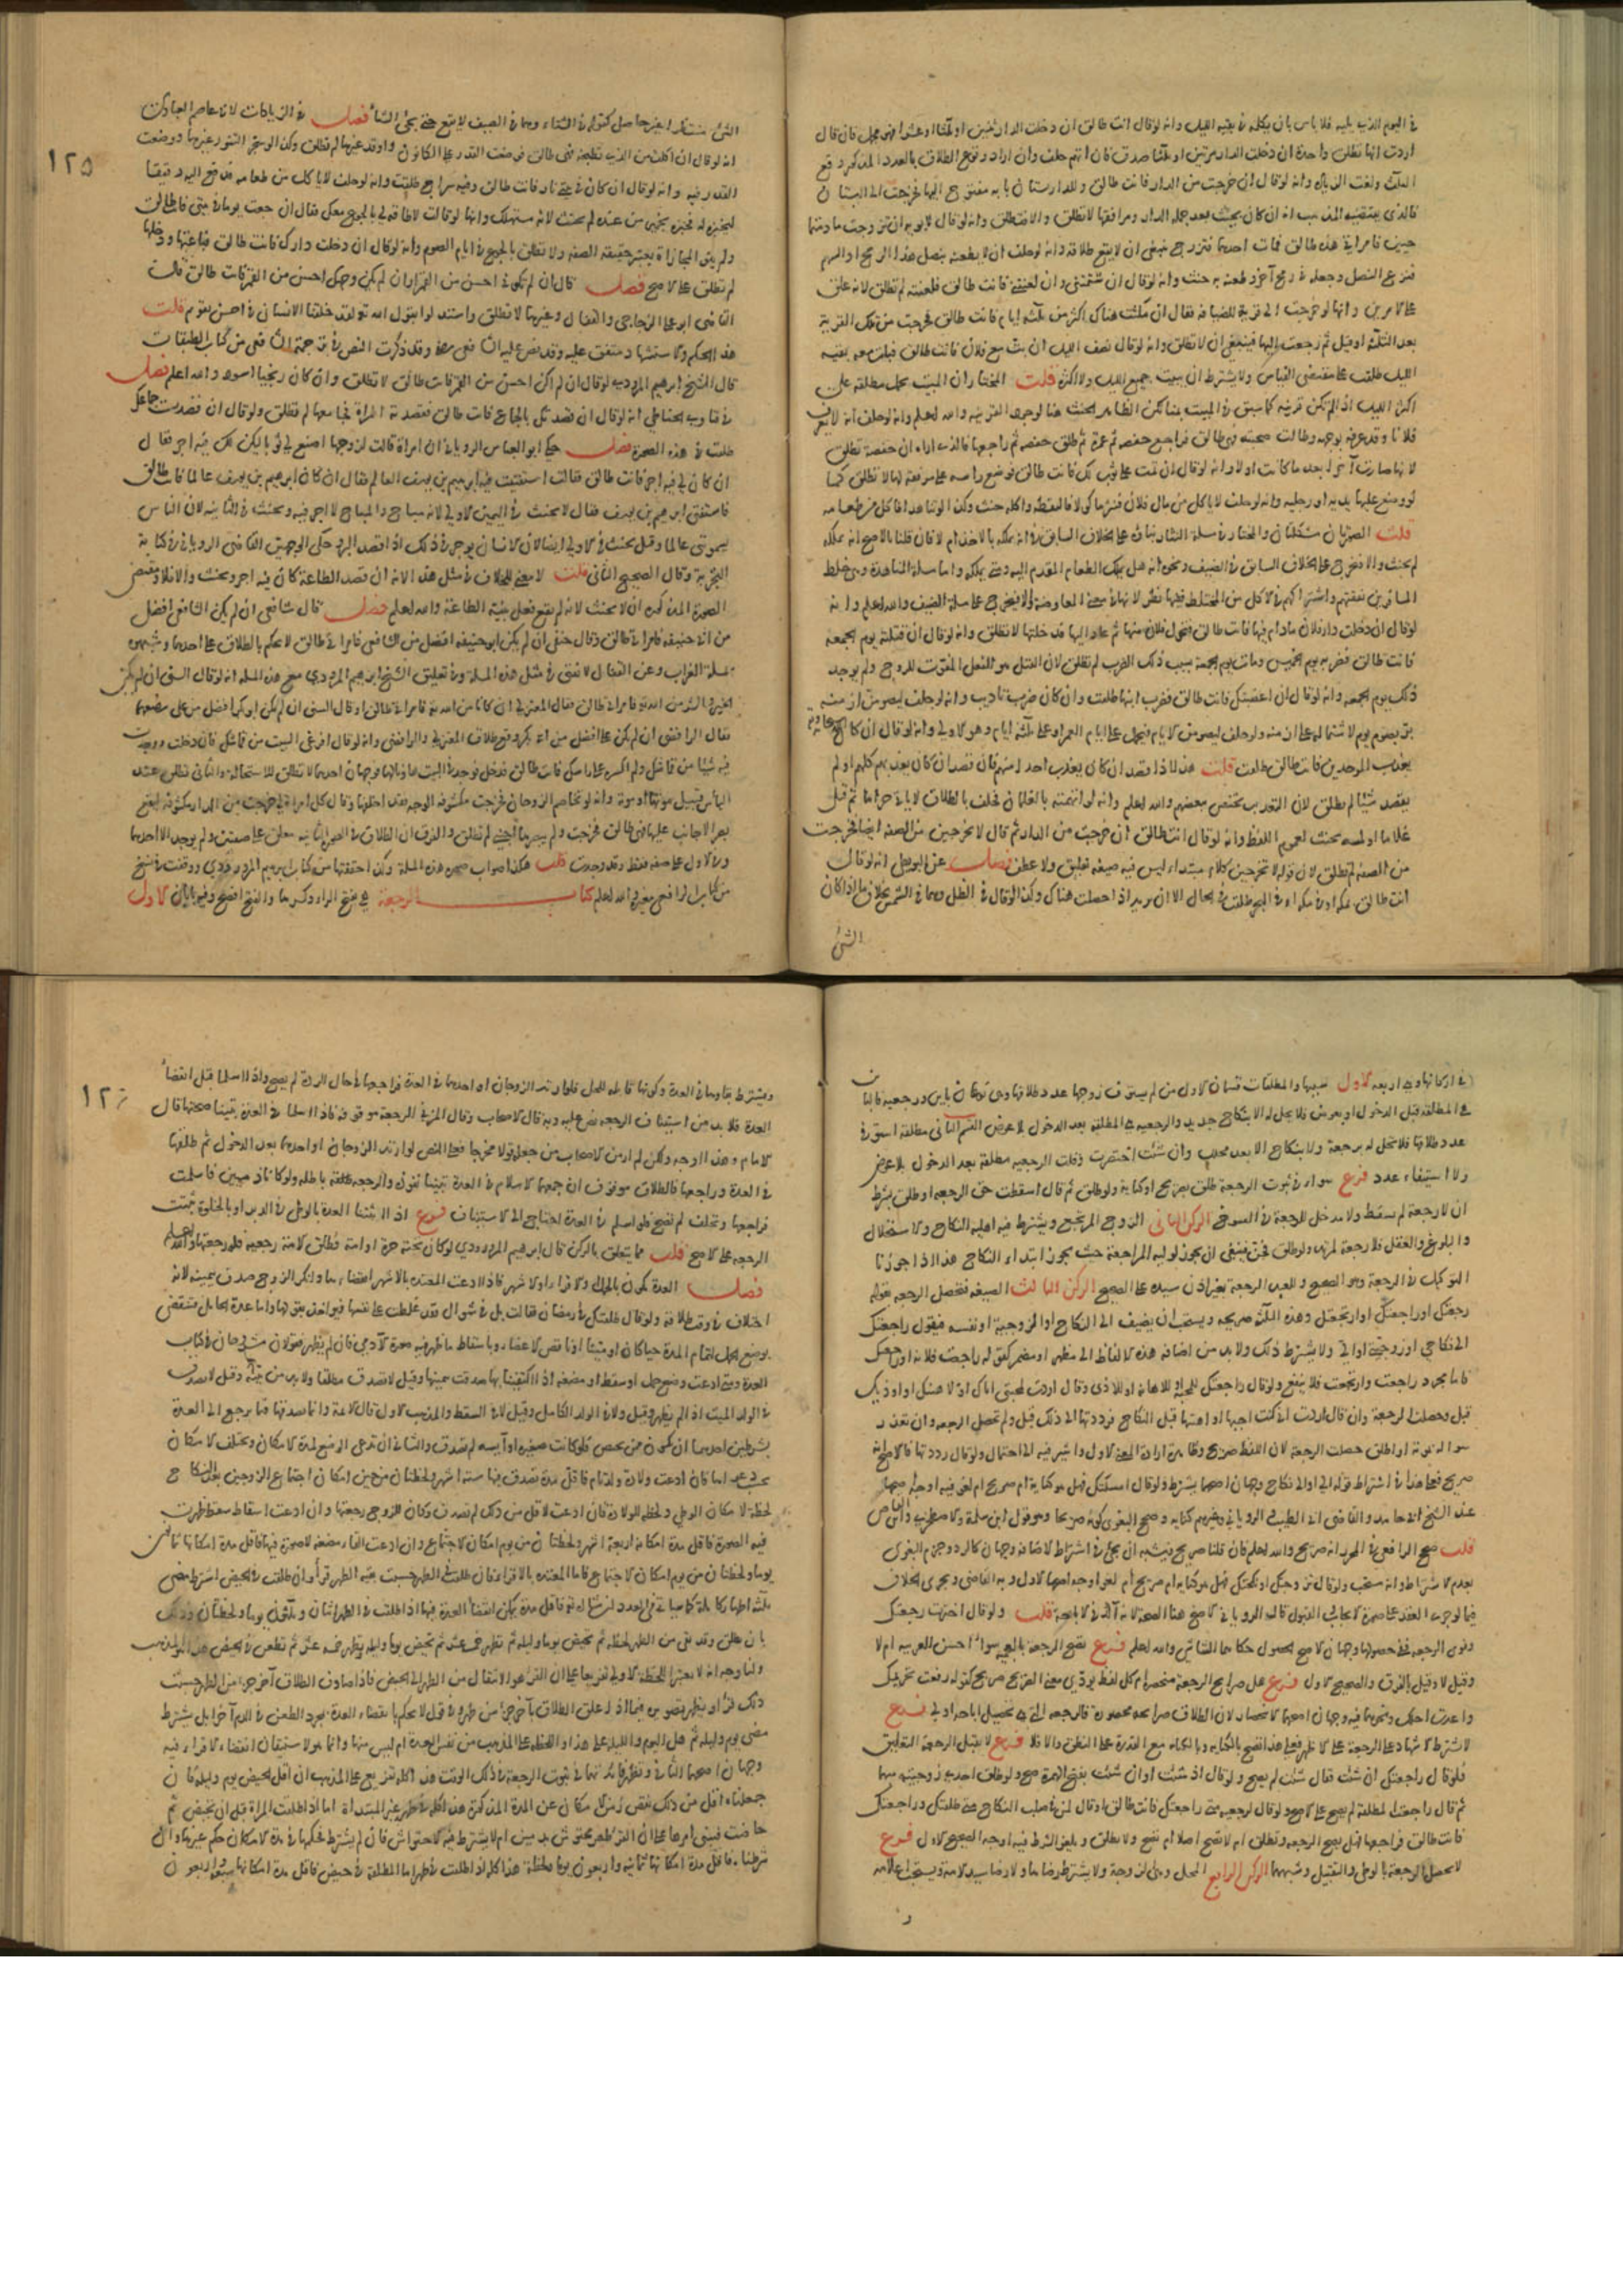 في اليوم الذي يليه فلا باس بان يكلمه في بقية الليل وانه لو قال انت طالق ان دخلت الدار ثنتين او ثلثا او عشرا فهي مجمل فان قال
اردت انها تطلق واحدة ان دخلت الدار مرتين او ثلثا صدق فان اتهم حلف وان اراد وقوع الطلاق بالعدد المذكور وقع
الثلث ولغت الزيادة وانه لو قال ان خرجت من الدار فانت طالق وللدار بستان بابه مفتوح اليها فخرجت الى البستان
فالذي يقتضيه المذهب انه ان كان بحيث يعد من جملة الدار ومرافقها لا تطلق والا فتطلق وانه لو قال لابويه ان تزوجت ما دمتما
حيين فامراتي هذه طالق فمات احدهما فتزوج ينبغي ان لا يقع طلاقه وانه لو حلف ان لا يطعنه بنصل هذا الرمح او السهم
فنزع النصل وجعله في رمح آخر وطعنه به حنث وانه لو قال ان شتمتني وان لعنتني فانت طالق فلعنته لم تطلق لانه علق
على الامرين وانها لو خرجت الى قرية للضيافة فقال ان مكثت هناك اكثر من ثلثة ايام فانت طالق فخرجت من تلك القرية
بعد الثلثة او قبل ثم رجعت اليها فينبغي ان لا تطلق وانه لو قال نصف الليل ان بت مع فلان فانت طالق فبات معه بقية
الليل طلقت على مقتضى القياس ولا يشترط ان يبيت جميع الليل ولا اكثره قلت المختار ان المبيت يحمل مطلقه على
اكثر الليل اذا لم يكن قرينة كما سبق في المبيت بمنا لكن الظاهر الحنث هنا لوجود القرينة والله اعلم وانه لو حلف انه لا يعرف
فلانا وقد عرفه بوجهه وطالت صحبته
لانها صارت
لو وضع عليها يديه او رجليه وانه لو حلف لا ياكل من مال فلان فنثر ماكولا فالتقطه واكله حنث وكذا لو تناهدا فاكل من طعامه
قلت الصورتان مشكلتان والمختار في مسلة النثار بناؤه على الخلاف السابق في انه يملكه بالاخذ ام لا فان قلنا بالاصح انه يملكه
لم يحنث والا فيخرج على الخلاف السابق في الضيف ونحوه انه هل يملك الطعام المقدم اليه ومتى يملكه واما مسلة المناهدة وهي خلط
المسافرين نفقتهم واشتراكهم في الاكل من المختلط ففيها نظر لانها في معنى المعاوضة والا فيخرج على مسلة الضيف والله اعلم وانه
لو قال ان دخلت دار فلان ما دام فيها فانت طالق فتحول فلان منها ثم عاد اليها فدخلتها لا تطلق وانه لو قال ان قتلته يوم الجمعة
فانت طالق فضربه يوم الخميس ومات يوم الجمعة بسبب ذلك الضرب لم تطلق لان القتل هو الفعل المفوت للروح ولم يوجد
ذلك يوم الجمعة وانه لو قال ان اغضبتك فانت طالق فضرب ابنها طلقت وان كان ضرب تاديب وانه لو حلف ليصومن ازمنة
بر بصوم يوم لاشتماله على ازمنة ولو حلف ليصومن الايام فيحمل على ايام العمر او على ثلثة ايام وهو الاولى وانه لو قال ان كان الله
يعذب الموحدين فانت طالق طلقت قلت هذا اذا قصد ان كان يعذب احدا منهم فان قصد ان كان يعذبهم كلهم او لم
يقصد شيئا لم تطلق لان التعذيب يختص ببعضهم والله اعلم وانه لو اتهمته بالغلمان فحلف بالطلاق لا ياتي حراما ثم قبل
غلاما او لمسه يحنث لعموم اللفظ وانه لو قال انت طالق ان خرجت من الدار ثم قال لا تخرجين من الصفة ايضا فخرجت
من الصفة لم تطلق لان قوله لا تخرجين كلام مبتدا وليس فيه صيغة تعليق ولا عطف فصل عن البويطي انه لو قال
انت طالق بمكة او في مكة او في البحر طلقت في الحال الا ان يريد اذا حصلت هناك وكذا لو قال في الظل وهما في الشمس بخلاف ما اذا كان
الشئ
١٢٥
الشئ منتظرا غير حاصل كقوله في الشتاء وهما في الصيف لا يقع حتى يجئ الشتاء فصل في الزيادات لابي عاصم العبادي
انه لو قال ان اكلت من الذي تطبخه فهي طالق فوضعت القدر على الكانون واوقد غيرها لم تطلق وكذا لو سجر التنور غيرها ووضعت
القدر فيه وانه لو قال ان كان في بيتي نار فانت طالق وفيه سراج طلقت وانه لو حلف لا ياكل من طعامه فدفع اليه دقيقا
ليخبزه له فخبزه بخمير من عنده لم يحنث لانه مستهلك وانها لو قالت لا طاقة لي بالجوع معك فقال ان جعت يوما في بيتي فانت طالق
ولم ينو المجازاة يعتبر حقيقة الصفة ولا تطلق بالجوع في ايام الصوم وانه لو قال ان دخلت دارك فانت طالق فباعتها ودخلها
لم تطلق على الاصح فصل قال ان لم تكوني احسن من القمر او ان لم يكن وجهك احسن من القمر فانت طالق قال
القاضي ابو علي الزجاجي والقفال وغيرهما لا تطلق واستدلوا بقول الله تع لقد خلقنا الانسان في احسن تقويم قلت
هذا الحكم والاستشهاد متفق عليه وقد نص عليه الشافعي رحمه الله وقد ذكرت النص في ترجمة الشافعي من كتاب الطبقات
قال الشيخ ابرهيم المروروذي لو قال ان لم اكن احسن من القمر فانت طالق لا تطلق وان كان زنجيا اسود والله اعلم فصل
في فتاويه الحناطي انه لو قال ان قصدتك بالجماع فانت طالق فقصدته المراة فجامعها لم تطلق ولو قال ان قصدت جماعك
طلقت في هذه الصورة فصل حكى ابو العباس الروياني ان امراة قالت لزوجها اصنع لي ثوبا ليكن لك فيه اجر فقال
ان كان لي فيه اجر فانت طالق فقالت استفتيت فيه ابرهيم بن يوسف العالم فقال ان كان ابرهيم بن يوسف عالما فانت طالق
فاستفتى ابرهيم بن يوسف فقال لا يحنث في اليمين الاولى لانه مباح والمباح لا اجر فيه ويحنث في الثانية لان الناس
يسموني عالما وقيل يحنث في الاولى ايضا لان الانسان يوجر في ذلك اذا قصد البر حكى الوجهين القاضي الروياني في كتابه
التجربة وقال الصحيح الثاني قلت لا معنى للخلاف في مثل هذا لانه ان قصد الطاعة كان فيه اجر وحنث والا فلا ومقتضى
الصورة المذكورة ان لا يحنث لانه لم يقع فعل بنية الطاعة والله اعلم فصل قال شافعي ان لم يكن الشافعي افضل
من ابي حنيفة فامراتي طالق وقال حنفي ان لم يكن ابو حنيفة افضل من الشافعي فامراتي طالق لا يحكم بالطلاق على احدهما وشبهوه
بمسلة الغراب وعن القفال لا نفتي في مثل هذه المسلة وفي تعليق الشيخ ابرهيم المروروذي مع هذه المسلة انه لو قال السني ان لم يكن
الخير والشر من الله تع فامراتي طالق فقال المعتزلي ان كانا من الله تع فامراتي طالق او قال السني ان لم يكن ابو بكر افضل من علي رضي الله عنهما
فقال الرافضي ان لم يكن علي افضل من ابي بكر وقع طلاق المعتزلي والرافضي وانه لو قال افرغي البيت من قماشك فان دخلت ووجدت
فيه شيئا من قماشك ولم اكسره على راسك فانت طالق فدخل فوجد في البيت هاونا لها فوجهان احدهما لا تطلق للاستحالة والثاني تطلق عند
الياس قبيل موتها او موته وانه لو تخاصم الزوجان فخرجت مكشوفة الوجه فعدا خلفها وقال كل امراة لي خرجت من الدار مكشوفة ليقع
بصر الاجانب عليها فهي طالق فخرجت ولم يبصرها اجنبي لم تطلق والفرق ان الطلاق في الصورة الثانية معلق على صفتين ولم يوجد الا احدهما
وفي الاولى على صفة فقط وقد وجدت قلت هكذا صواب صورة هذه المسلة وكذا حققتها من كتاب ابرهيم المروروذي ووقعت في نسخ
من كتاب الرافعي مغيرة والله اعلم كتاب الرجعة هي بفتح الراء وكسرها والفتح افصح وفيه بابان الاول
في اركانها وهي اربعة الاول سببها والمطلقات قسمان الاول من لم يستوف زوجها عدد طلاقها وهي نوعان باين ورجعية فالباين
هي المطلقة قبل الدخول او بعوض فلا يحل له الا بنكاح جديد والرجعية هي المطلقة بعد الدخول بلا عوض القسم الثاني مطلقة استوفي
عدد طلاقها فلا تحل له برجعة ولا بنكاح الا بعد محلل وان شئت اختصرت وقلت الرجعية مطلقة بعد الدخول بلا عوض
ولا استيفاء عدد فرع سواء في ثبوت الرجعة طلق بصريح او كناية ولو طلق ثم قال اسقطت حق الرجعة او طلق بشرط
ان لا رجعة لم يسقط ولا مدخل للرجعة في الفسوخ الركن الثاني الزوج المرتجع ويشترط فيه اهلية النكاح والاستحلال
والبلوغ والعقل فلا رجعة لمرتد ولو طلق فجن فينبغي ان يجوز لوليه المراجعة حيث يجوز ابتداء النكاح هذا اذا جوزنا
التوكيل في الرجعة وهو الصحيح وللعبد الرجعة بغير اذن سيده على الصحيح الركن الثالث الصيغة فتحصل الرجعة بقوله
رجعتك او راجعتك او ارتجعتك وهذه الثلثة صريحة ويستحب ان يضيف الى النكاح او الزوجية او نفسه فيقول راجعتك
الى نكاحي او زوجيتي او الي ولا يشترط ذلك ولا بد من اضافة هذه الالفاظ الى مظهر او مضمر كقوله راجعت فلانة او راجعتك
فاما مجرد راجعت وارتجعت فلا ينفع ولو قال راجعتك للمحبة او للاهانة او للاذى وقال اردت لمحبتي اياك او لاهينك او اوذيك
قبل وحصلت الرجعة وان قال اردت اني كنت احبها او اهينها قبل النكاح فرددتها الى ذلك قبل ولم تحصل الرجعة وان تعذر
سواله بموته او اطلق حصلت الرجعة لان اللفظ صريح وظاهره ارادة المعنى الاول واشير فيه الى احتمال ولو قال رددتها فالاصح انه
صريح فعلى هذا في اشتراط قوله الي او الى نكاحي وجهان اصحهما يشترط ولو قال امسكتك فهل هو كناية ام صريح ام لغو فيه اوجه اصحها
عند الشيخ ابي حامد والقاضي ابي الطيب والروياني وغيرهم كناية وصحح البغوي كونه صريحا وهو قول ابن سلمة والاصطخري وابن القاص
قلت صحح الرافعي في المحرر انه صريح والله اعلم فان قلنا صريح فيشبه ان يجئ في اشتراط الاضافة وجهان كالرد وجزم البغوي
بعدم الاشتراط وانه مستحب ولو قال تزوجتك او نكحتك فهل هو كناية ام صريح ام لغو اوجه اصحها الاول وبه القاضي ويجري الخلاف
فيما لو جرى العقد على صورة الايجاب والقبول قاله الروياني الاصح هنا الصحة لانه آكد في الاباحة قلت ولو قال اخترت رجعتك
ونوى الرجعة ففي حصولها وجهان الاصح الحصول حكاهما الشاشي والله اعلم فرع تصح الرجعة بالعجمية سواء احسن العربية ام لا
وقيل لا وقيل بالفرق والصحيح الاول فرع هل صرايح الرجعة منحصرة ام كل لفظ يودي معنى الصريح صريح كقوله رفعت تحريمك
واعدت حلك ونحوهما فيه وجهان اصحهما الانحصار لان الطلاق صرايحه محصورة فالرجعة التي هي تحصيل اباحة اولى فرع
لا يشترط الاشهاد على الرجعة على الاظهر فعلى هذا تصح بالكناية وبالكتابة مع القدرة على النطق والا فلا فرع لا يقبل الرجعة التعليق
فلو قال راجعتك ان شئت فقال شئت لم يصح ولو قال اذ شئت او ان شئت بفتح الهمزة صح ولو طلق احدى زوجتيه مبهما
ثم قال راجعت المطلقة لم يصح على الاصح ولو قال لرجعية متى راجعتك فانت طالق او قال لمن في صلب النكاح متى طلقتك وراجعتك
فانت طالق فراجعها فهل يصح الرجعة وتطلق ام لا تصح اصلا ام تصح ولا تطلق ويلغو الشرط فيه اوجه الصحيح الاول فرع
لا تحصل الرجعة بالوطي والتقبيل وشبههما الركن الرابع المحل وهي الزوجة ولا يشترط رضاها ولا رضا سيد الامة ويستحب اعلامه
و
١٢٦
ويشترط بقاوها في العدة وكونها قابلة للحل فلو ارتد الزوجان او احدهما في العدة فراجعها في حال الردة لم يصح واذا اسلما قبل انقضاء
العدة فلا بد من استيناف الرجعة نص عليه وبه قال الاصحاب وقال المزني الرجعة موقوفة فاذا اسلما في العدة تبينا صحتها قال
الامام وهذا له وجه ولكن لم ار من الاصحاب من جعله قولا مخرجا فعلى النص لو ارتد الزوجان او احدهما بعد الدخول ثم طلقها
في العدة وراجعها فالطلاق موقوف ان جمعهما الاسلام في العدة تبينا نفوذه والرجعة باطلة ولو كانا ذميين فاسلمت
فراجعها وتخلف لم تصح فلو اسلم في العدة احتاج الى الاستيناف فرع اذا اثبتنا العدة بالوطي في الدبر او بالخلوة ثبتت
الرجعة على الاصح قلت مما يتعلق بالركن قال ابرهيم المروروذي لو كان تحته حرة او امة وطلق الامة رجعية فله رجعتها والله اعلم
فصل العدة تكون بالحمل والاقراء والاشهر فاذا ادعت المعتدة بالاشهر انقضاءها وانكر الزوج صدق بيمينه لانه
اختلاف في وقت طلاقه ولو قال طلقتك في رمضان فقالت بل في شوال فقد غلظت على نفسها فيوخذ بقولها واما عدة الحامل فتنقضي
بوضع الحمل لتمام المدة حيا كان او ميتا او ناقص الاعضاء وباسقاط ما ظهر فيه صورة الآدمي فان لم يظهر فقولان مشروحان في كتاب
العدة ومتى ادعت وضع حمل او سقط او مضغة اذا اكتفينا بها صدقت بيمينها وقيل لا تصدق مطلقا ولا بد من بينة وقيل لا تصدق
في الولد الميت اذا لم يظهر وقيل ولا في الولد الكامل وقيل لا في السقط والمذهب الاول قال الايمة وانما صدقنا فيما يرجع الى العدة
بشرطين احدهما ان تكون ممن تحيض فلو كانت صغيرة او آيسة لم تصدق والثاني ان تدعي الوضع لمدة الامكان ويختلف الامكان
بحسب دعواها فان ادعت ولادة ولد تام فاقل مدة تصدق فيها ستة اشهر ولحظتان من حين امكان اجتماع الزوجين بعد النكاح
لحظة لامكان الوطي ولحظة للولادة فان ادعت لاقل من ذلك لم تصدق وكان للزوج رجعتها وان ادعت اسقاط سقط ظهرت
فيه الصورة فاقل مدة امكانه اربعة اشهر ولحظتان من يوم امكان الاجتماع وان ادعت القاء مضغة لا صورة فيها فاقل مدة امكانها ثمانون
يوما ولحظتان من يوم امكان الاجتماع فاما المعتدة بالاقراء فان طلقت في الطهر حسبت بقية الطهر قرأ وان طلقت في الحيض اشترط مضي
ثلثة اطهار كاملة كما سياتي في العدد ان شاء الله تع فاقل مدة يمكن انقضاء العدة فيها اذا طلقت في الطهر اثنان وثلثون يوما ولحظتان وذلك
بان تطلق وقد بقي من الطهر لحظة ثم تحيض يوما وليلة ثم تطهر خمسة عشر ثم تحيض يوما وليلة وتطهر خمسة عشر ثم تطعن في الحيض هذا هو المذهب
ولنا وجه انه لا يعتبر اللحظة الاولى تفريعا على ان القرء هو الانتقال من الطهر الى الحيض فاذا صادف الطلاق آخر جزء من الطهر حسب
ذلك قرأ ويظهر تصويره فيما اذا علق الطلاق بآخر جزء من طهره وفي قول لا يحكم بانقضاء العدة بمجرد الطعن في الدم آخرا بل يشترط
مضي يوم وليلة ثم هل اليوم والليلة على هذا او اللحظة على المذهب من نفس العدة ام ليس منها وانما هو لاستيقان انقضاء الاقراء فيه
وجهان اصحهما الثاني وتظهر فايدتهما في ثبوت الرجعة في ذلك الوقت هذا كله تفريع على المذهب ان اقل الحيض يوم وليلة فان
جعلناه اقل من ذلك نقص زمن الامكان عن المدة المذكورة هذا كله في طهر غير المبتداة اما اذا طلقت المراة قبل ان تحيض ثم
حاضت فيبنى امرها على ان القرء طهر محتوش بدمين ام لا يشترط فيه الاحتواش فان لم يشترط فحكمها في مدة الامكان حكم غيرها وان
شرطناه فاقل مدة امكانها ثمانية واربعون يوما ولحظة هذا كله اذا طلقت في طهر اما المطلقة في حيض فاقل مدة امكانها سبعة واربعون